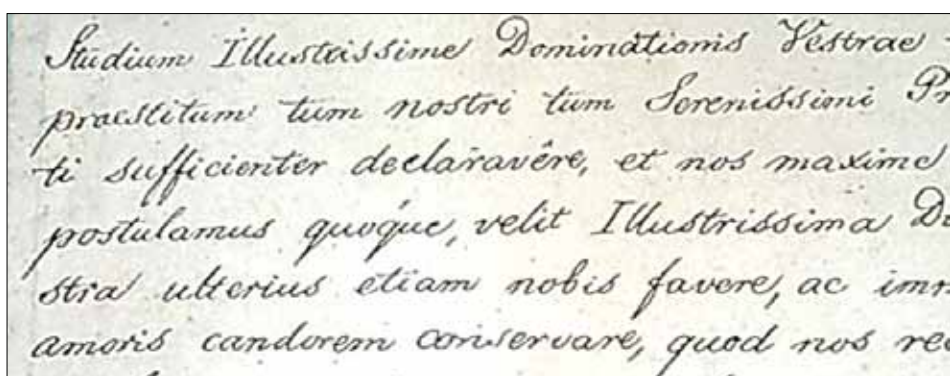 Studium Illustrissime Dominationis Vestrae
praestitum tum nostri tum Serenissimi
ti sufficienter declaravêre, et nos maxime
postulamus quoque, velit Illustrissima
stra ulterius etiam nobis favere, ac
amoris candorem conservare, quod nos